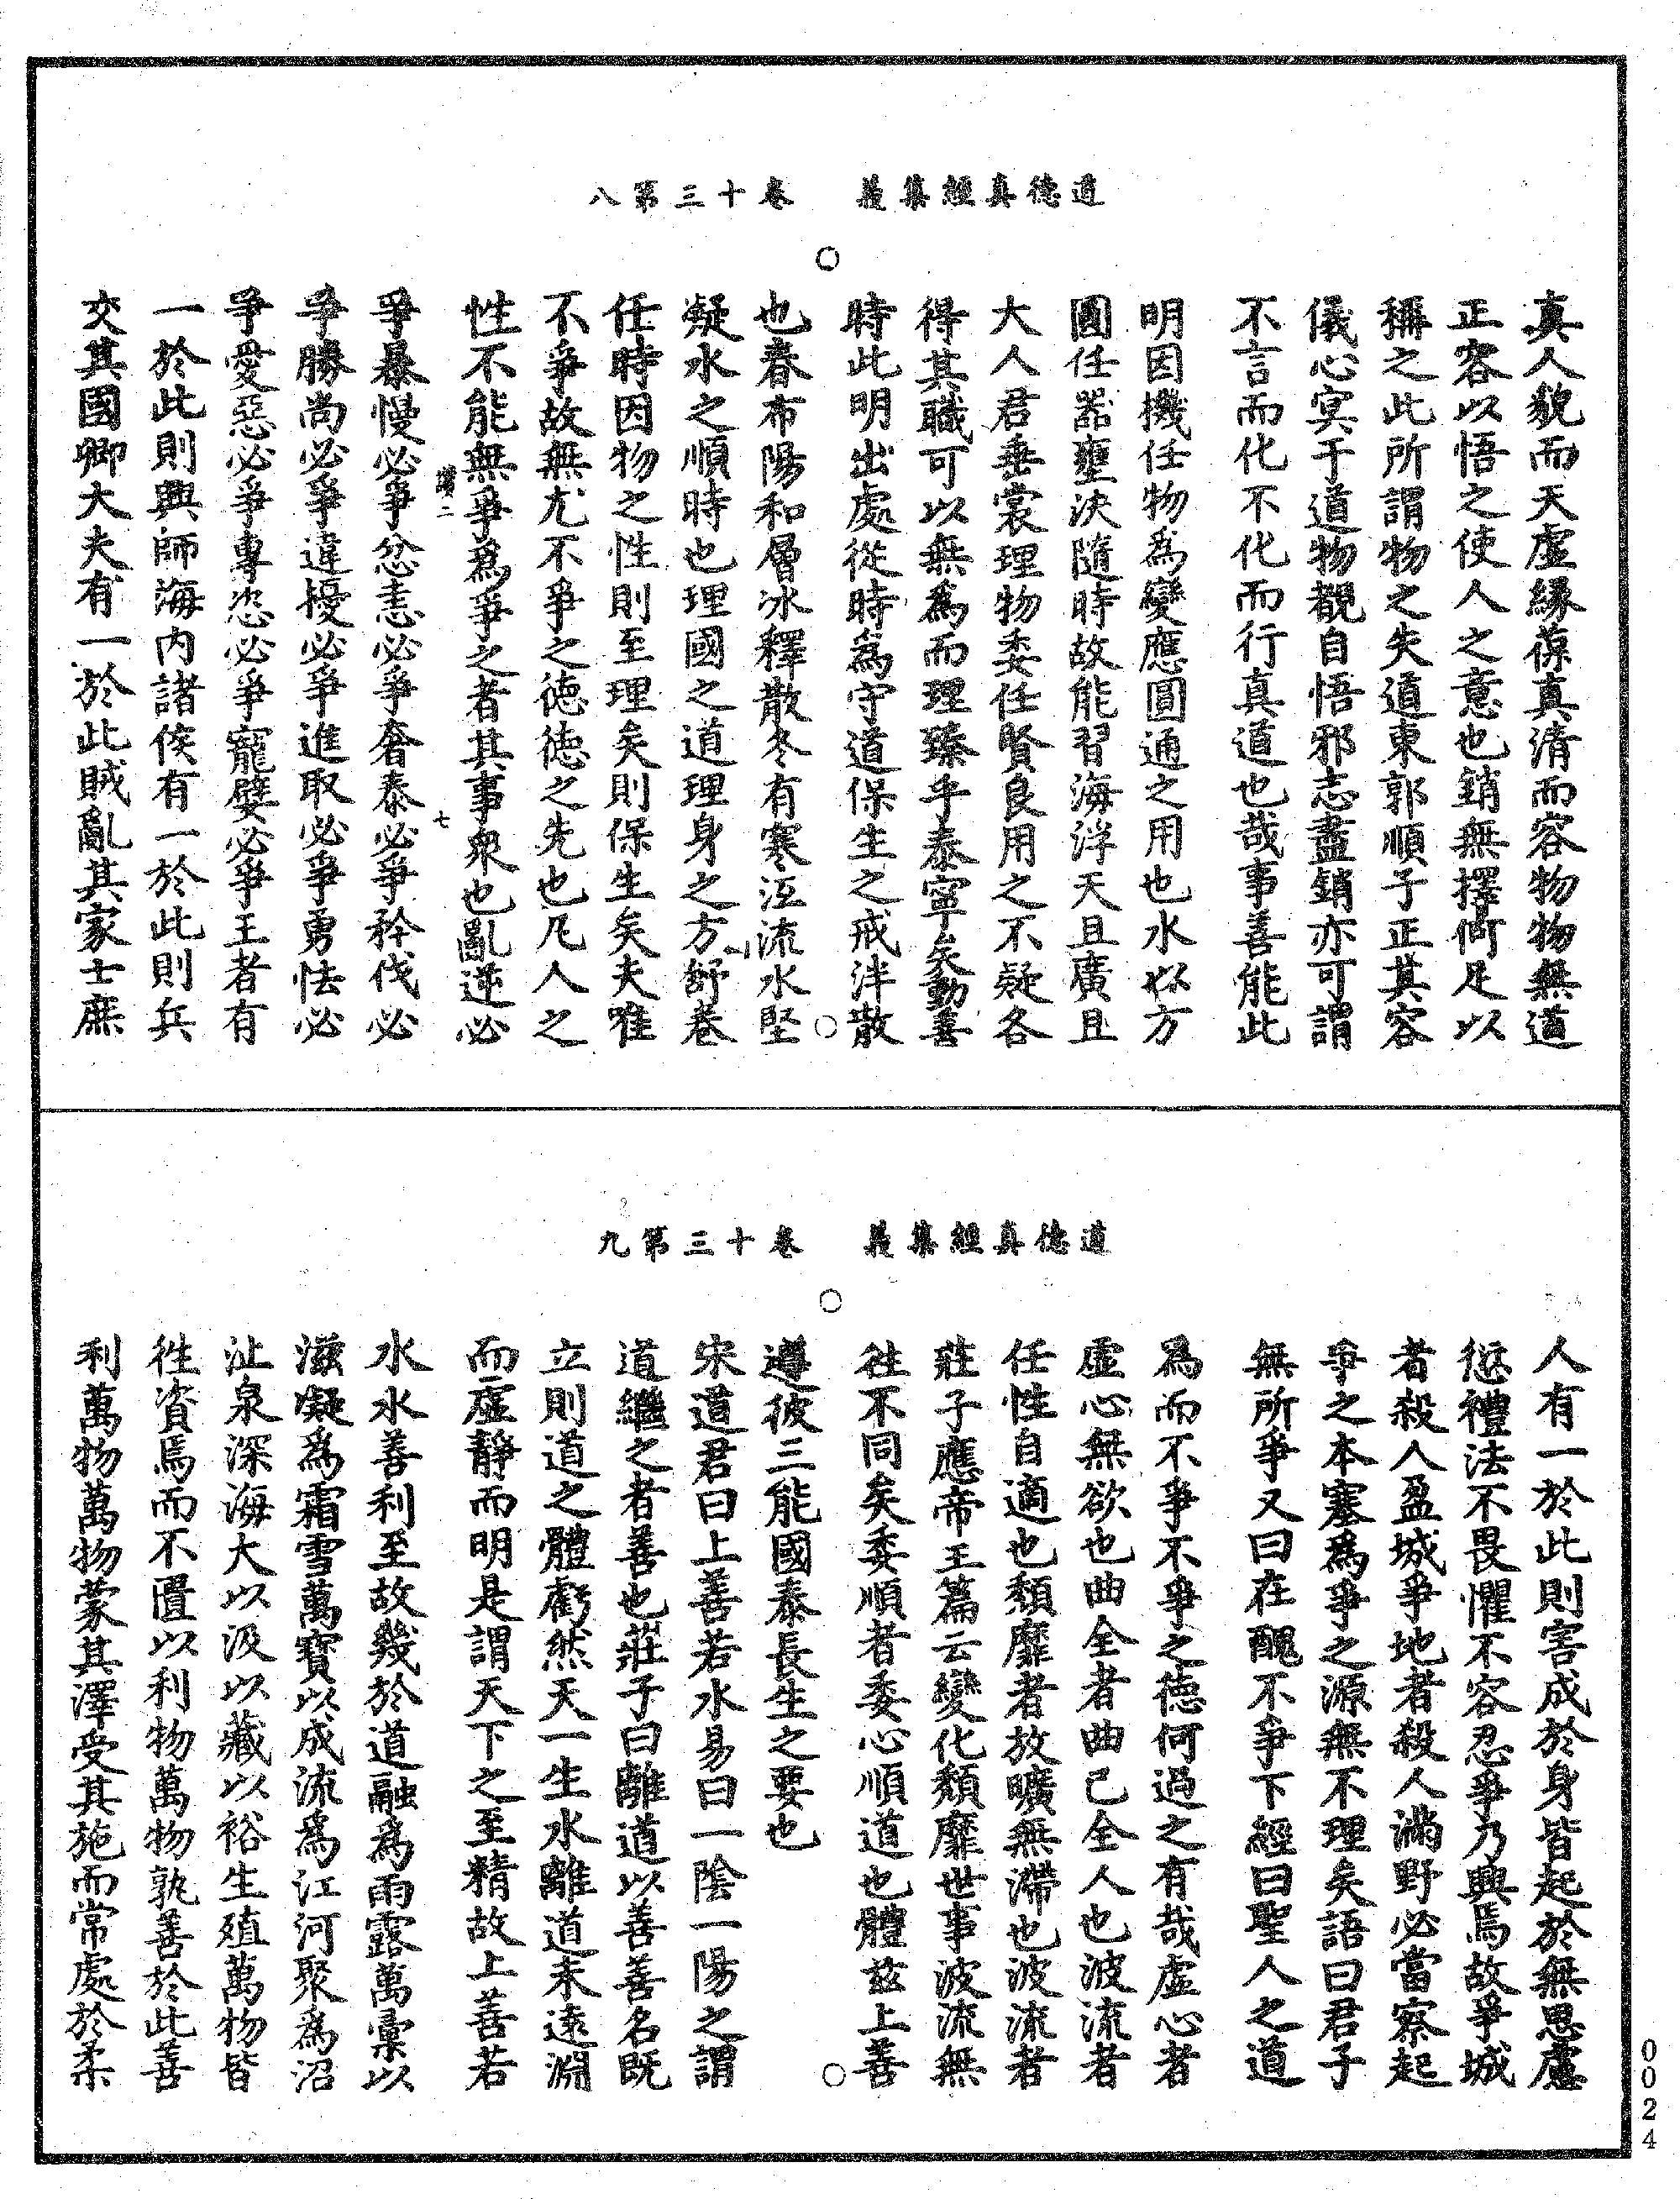 道德真經集義　卷十三第八
真人貌而天虛緣葆真清而容物物無道
正容以悟之使人之意也銷無擇何足以
稱之此所謂物之失道東郭順子正其容
儀心冥于道物覩自悟邪志盡銷亦可謂
不言而化不化而行真道也哉事善能此
明因機任物為變應圓通之用也水必方
圓任器壅決隨時故能習海浮天且廣且
大人君垂裳理物委任賢良用之不疑各
得其職可以無為而理臻乎泰寧矣動善
時此明出處從時為守道保生之戒泮散
也春布陽和層冰釋散冬有寒沍流水堅
凝水之順時也理國之道理身之方舒卷
任時因物之性則至理矣則保生矣夫唯
不爭故無尤不爭之德德之先也凡人之
性不能無爭為爭之者其事眾也亂逆必
讚二　七
爭暴慢必爭忿恚必爭奢泰必爭矜伐必
爭勝尚必爭違擾必爭進取必爭勇怯必
爭愛惡必爭專恣必爭寵嬖必爭王者有
一於此則興師海內諸侯有一於此則兵
交其國卿大夫有一於此賊亂其家士庶
道德真經集義　卷十三第九
人有一於此則害成於身皆起於無思慮
愆禮法不畏懼不容忍爭乃興焉故爭城
者殺人盈城爭地者殺人滿野必當察起
爭之本塞為爭之源無不理矣語曰君子
無所爭又曰在醜不爭下經曰聖人之道
為而不爭不爭之德何過之有哉虛心者
虛心無欲也曲全者曲己全人也波流者
任性自適也頹靡者放曠無滯也波流者
莊子應帝王篇云變化頹靡世事波流無
往不同矣委順者委心順道也體茲上善
遵彼三能國泰長生之要也
宋道君曰上善若水易曰一陰一陽之謂
道繼之者善也莊子曰離道以善善名既
立則道之體虧然天一生水離道未遠淵
而虛靜而明是謂天下之至精故上善若
水水善利至故幾於道融為雨露萬彙以
滋凝為霜雪萬寶以成流為江河聚為沼
沚泉深海大以汲以藏以裕生殖萬物皆
往資焉而不匱以利物萬物孰善於此善
利萬物萬物蒙其澤受其施而常處於柔
0024